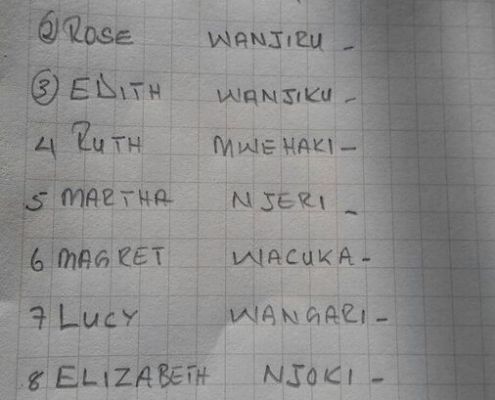 2 ROSE WANJIRU -
3 EDITH WANJIKU -
4 RUTH MWEHAKI -
5 MARTHA NJERI -
6 MAGRET WACUKA -
7 LUCY WANGARI -
8 ELIZABETH NJOKI -